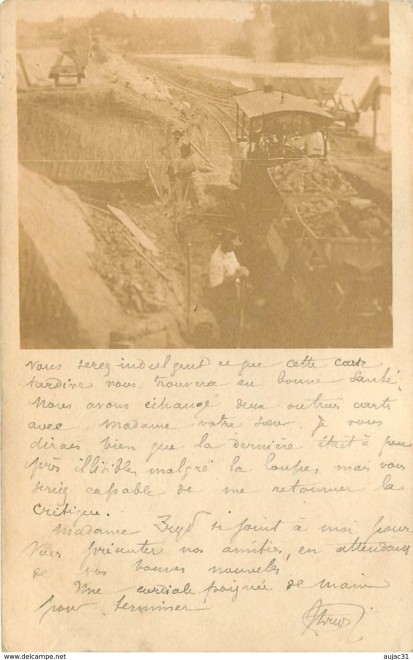 vous serez indulgent ce que cette carte
tardive vous trouvera en bonne santé.
Nous avons échangé deux ou trois carts
avec Madame votre sœur. Je vous
dirais bien que la dernière était à peu
près illisible, malgré la loupe, mais vous
seriez capable de me retourner la
critique.
Madame se joint à moi pour
vous présenter nos amitiés, en attendant
de vos bonnes nouvelles
Une cordiale poignée de main
pour terminer
© www.delcampe.net
https://www.delcampe.net/
aujac31